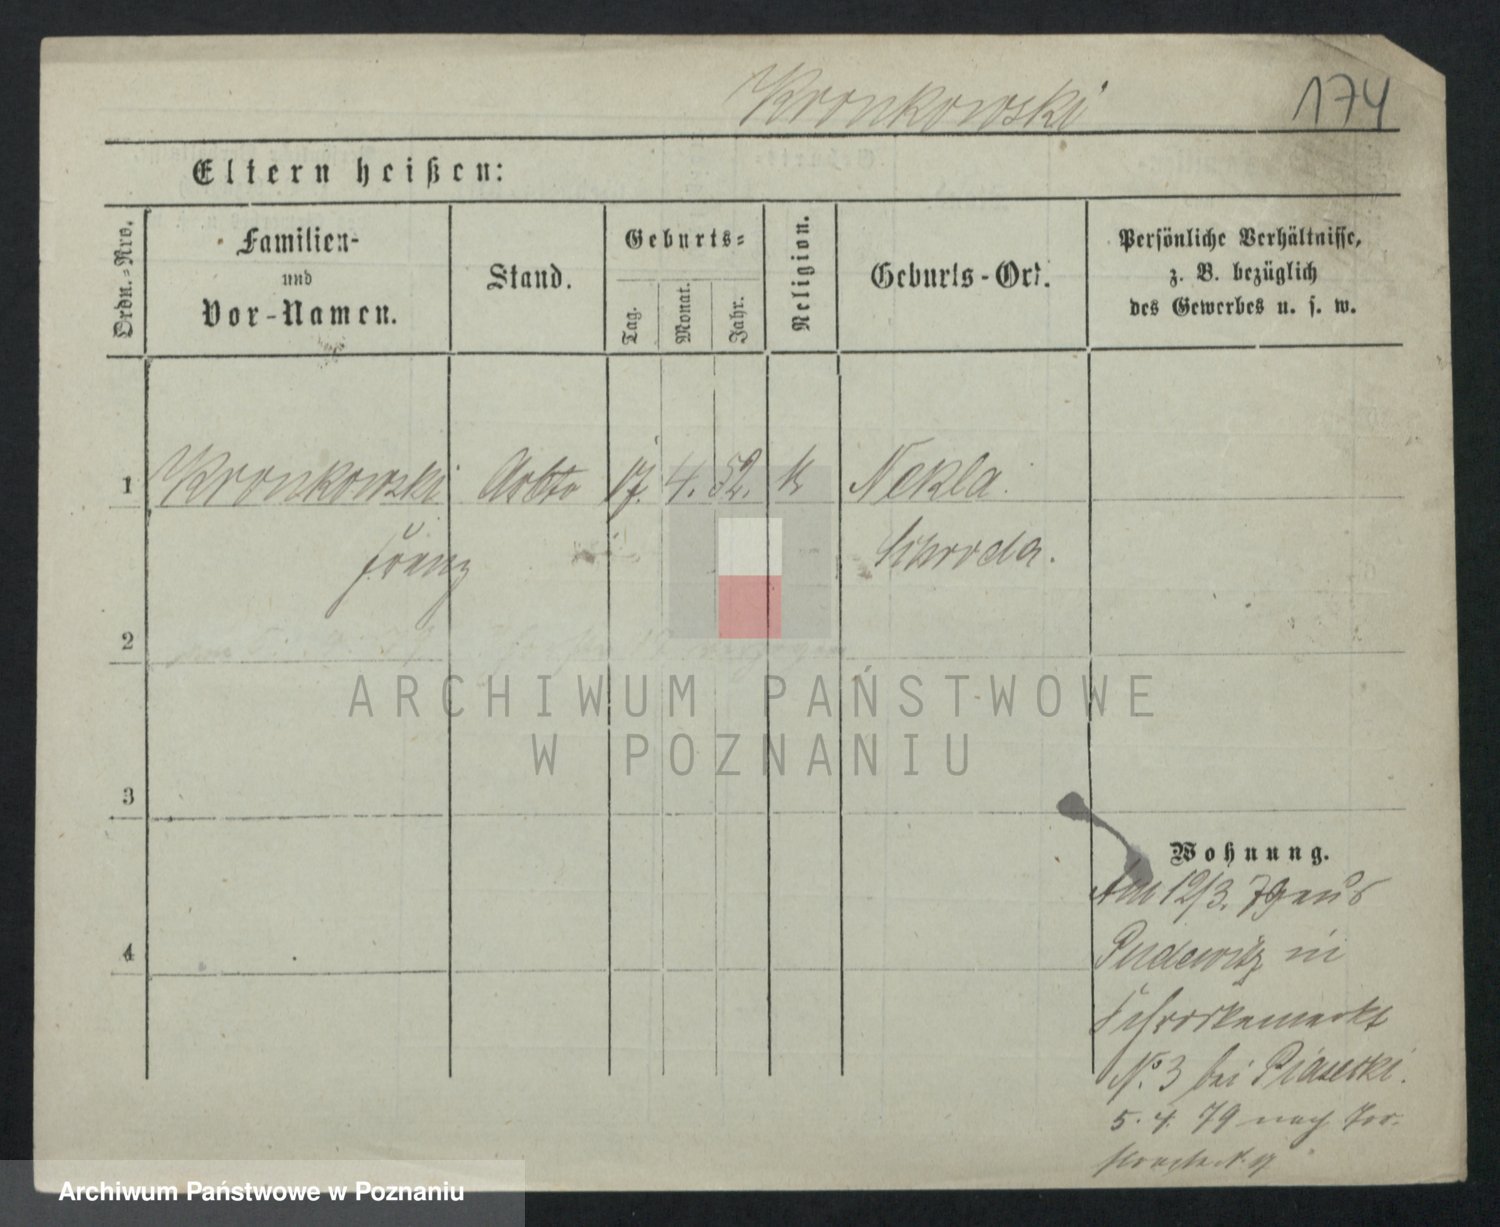 Kronkowski
174
Eltern heißen:
Ordn.-Nro.
Familien-
und
Vor-Namen.
Stand.
Geburts-
Tag.
Monat.
Jahr.
Religion.
Geburts-Ort.
Persönliche Verhältnisse,
z. B. bezüglich
des Gewerbes u. s. w.
1 Kronkowski 17. 4. 52. k Nekla.
Franz Schroda.
2
3
4
ARCHIWUM PAŃSTWOWE
W POZNANIU
Wohnung.
Am 12/3. 79 aus
Pudewitz in
No. 3 bei Piasetki.
5. 4. 79 nach
Archiwum Państwowe w Poznaniu